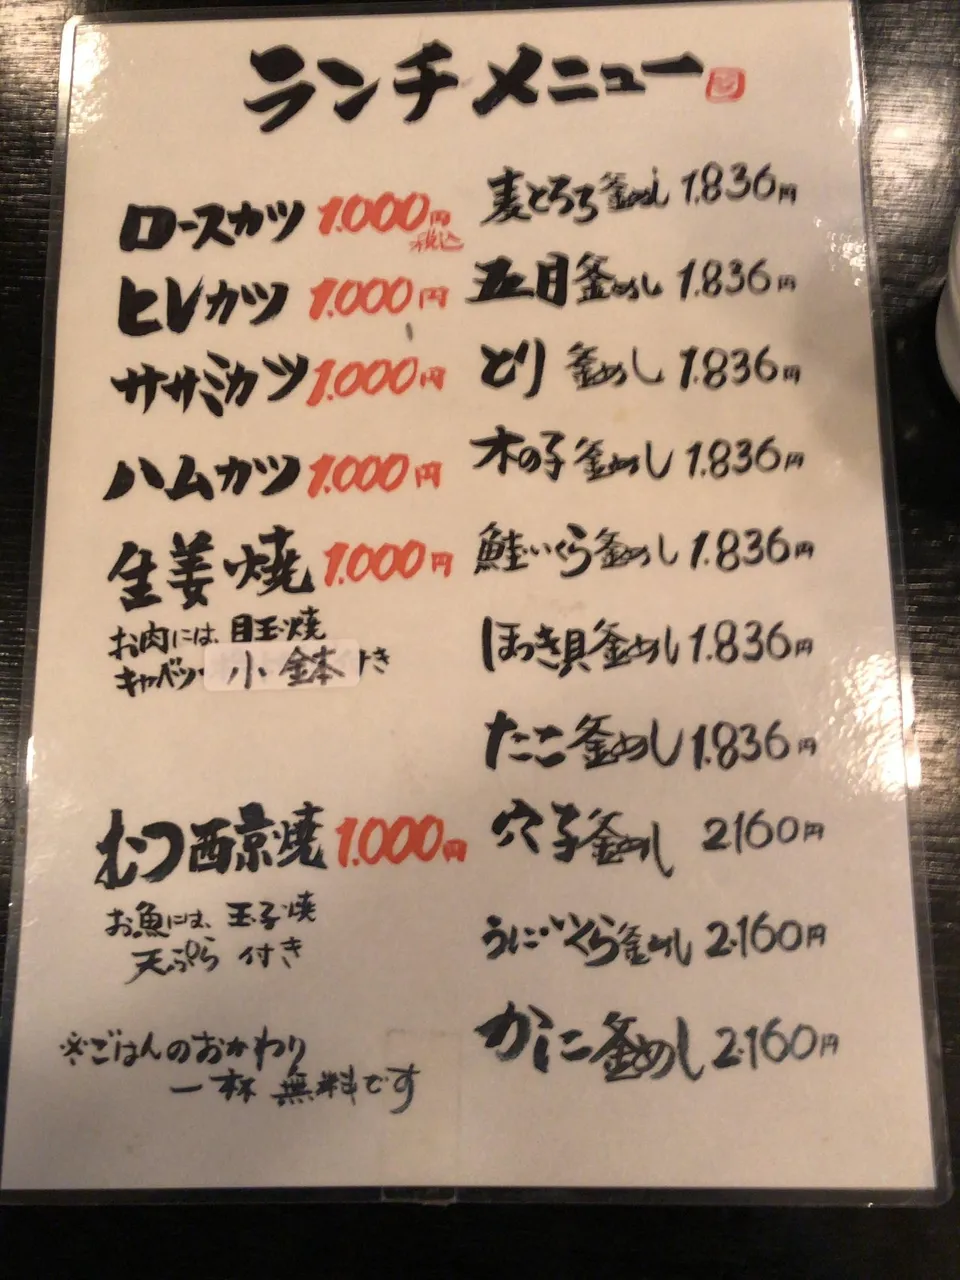 ランチメニュー
ロースカツ 1.000円
税込
ヒレカツ 1.000円
ササミカツ 1.000円
ハムカツ 1.000円
生姜焼 1.000円
お肉には、目玉焼
キャベツ・小鉢付き
むつ西京焼 1.000円
お魚には、玉子焼
天ぷら 付き
※ごはんのおかわり
一杯 無料です
麦とろろ釜めし 1.836円
五目釜めし 1.836円
とり 釜めし 1.836円
木の子釜めし 1.836円
鮭いくら釜めし 1.836円
ほっき貝釜めし 1.836円
たこ釜めし 1.836円
穴子釜めし 2160円
うに・いくら釜めし 2.160円
かに釜めし 2.160円